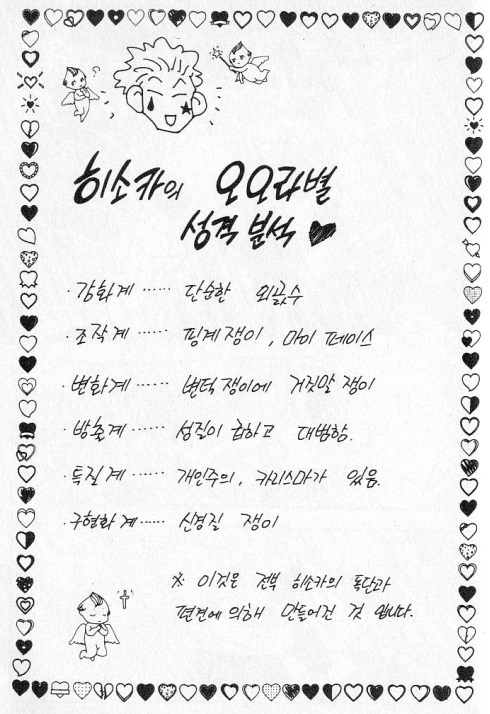 히소카의 오오라별
성격 분석
· 강화계 …… 단순한 외곬수
· 조작계 …… 핑계쟁이, 마이 페이스
· 변화계 …… 변덕쟁이에 거짓말 쟁이
· 방출계 …… 성질이 급하고 대범함.
· 특질계 …… 개인주의, 카리스마가 있음.
· 구현화계 …… 신경질 쟁이
※ 이것은 전부 히소카의 독단과
편견에 의해 만들어진 것 입니다.